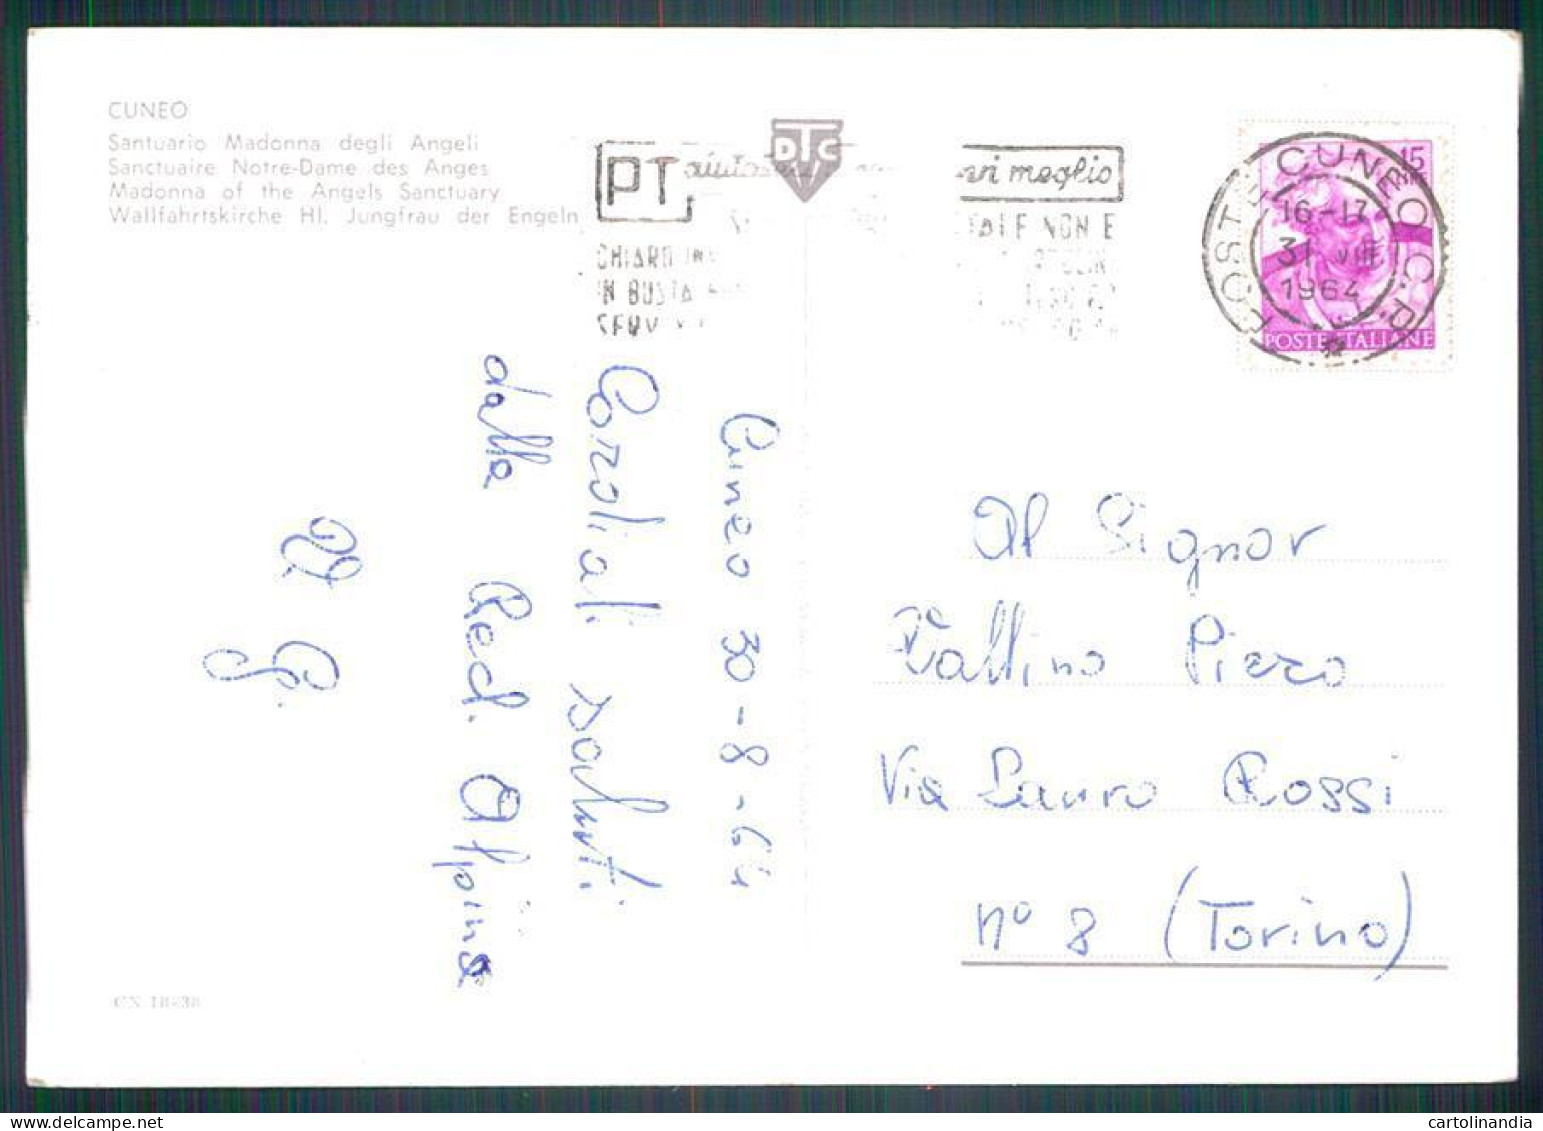 CUNEO
Santuario Madonna degli Angeli
Sanctuaire Notre-Dame des Anges
Madonna of the Angels Sanctuary
Wallfahrtskirche Hl. Jungfrau der Engeln
PT
meglio
DTC
CHIARO
IN BUSTA
NON E
POSTE CUNEO C.P.
16-17
31 VIII
1964
15
POSTE ITALIANE
Cuneo 30-8-64
Cordiali saluti
dalla Red. Alpina
V.
G.
Al Signor
Piero
Via Lauro Rossi
n° 8 (Torino)
CN 18-38
cartolinandia